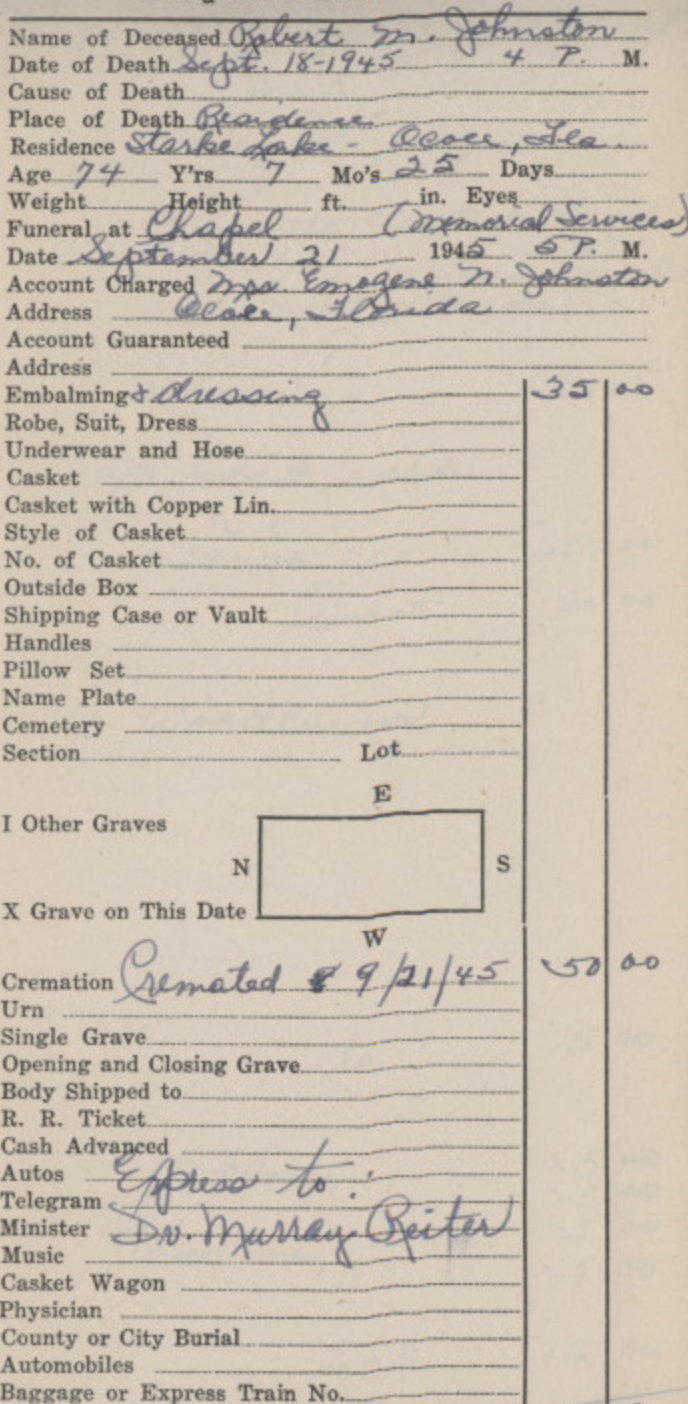 Name of Deceased Robert M. Johnston
Date of Death Sept. 18-1945 4 P. M.
Cause of Death
Place of Death Residence
Residence Starke Lake - Ocoee, Fla.
Age 74 Y'rs 7 Mo's 25 Days
Weight Height ft. in. Eyes
Funeral at Chapel (Memorial Services)
Date September 21 1945 5 P. M.
Account Charged Mrs. Emogene N. Johnston
Address Ocoee, Florida
Account Guaranteed
Address
Embalming & dressing 35 00
Robe, Suit, Dress
Underwear and Hose
Casket
Casket with Copper Lin.
Style of Casket
No. of Casket
Outside Box
Shipping Case or Vault
Handles
Pillow Set
Name Plate
Cemetery
Section Lot
E
I Other Graves
N S
X Grave on This Date
W
Cremation Cremated 9/21/45 50 00
Urn
Single Grave
Opening and Closing Grave
Body Shipped to
R. R. Ticket
Cash Advanced
Autos Express to:
Telegram
Minister Dr. Murray Reiter
Music
Casket Wagon
Physician
County or City Burial
Automobiles
Baggage or Express Train No.